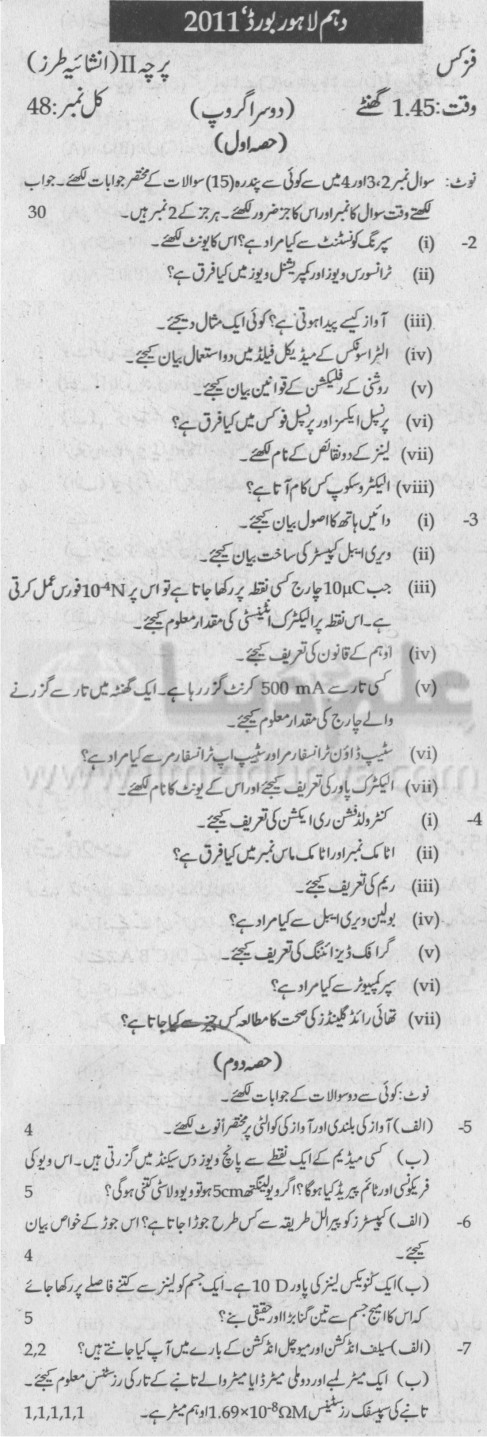 دہم لاہور بورڈ، 2011
فزکس پرچہ II (انشائیہ طرز)
وقت: 1.45 گھنٹے (دوسرا گروپ) کل نمبر: 48
(حصہ اول)
نوٹ: سوال نمبر 2،3 اور 4 میں سے کوئی سے پندرہ (15) سوالات کے مختصر جوابات لکھئے۔ جواب
لکھتے وقت سوال کا نمبر اور اس کا جز ضرور لکھئے۔ ہر جز کے 2 نمبر ہیں۔ 30
2- (i) سپرنگ کونسٹنٹ سے کیا مراد ہے؟ اس کا یونٹ لکھئے۔
(ii) ٹرانسورس ویوز اور کمپریشنل ویوز میں کیا فرق ہے؟
(iii) آواز کیسے پیدا ہوتی ہے؟ کوئی ایک مثال دیجئے۔
(iv) الٹراسونکس کے میڈیکل فیلڈ میں دو استعمال بیان کیجئے۔
(v) روشنی کے رفلیکشن کے قوانین بیان کیجئے۔
(vi) پرنسپل ایکسز اور پرنسپل فوکس میں کیا فرق ہے؟
(vii) لینز کے دو نقائص کے نام لکھئے۔
(viii) الیکٹروسکوپ کس کام آتا ہے؟
3- (i) دائیں ہاتھ کا اصول بیان کیجئے۔
(ii) ویری ایبل کپیسٹر کی ساخت بیان کیجئے۔
(iii) جب 10μC چارج کسی نقطہ پر رکھا جاتا ہے تو اس پر 10⁻⁴N فورس عمل کرتی
ہے۔ اس نقطہ پر الیکٹرک انٹینسٹی کی مقدار معلوم کیجئے۔
(iv) اوہم کے قانون کی تعریف کیجئے۔
(v) کسی تار سے 500 mA کرنٹ گزر رہا ہے۔ ایک گھنٹہ میں تار سے گزرنے
والے چارج کی مقدار معلوم کیجئے۔
(vi) سٹیپ ڈاؤن ٹرانسفارمر اور سٹیپ اپ ٹرانسفارمر سے کیا مراد ہے؟
(vii) الیکٹرک پاور کی تعریف کیجئے اور اس کے یونٹ کا نام لکھئے۔
4- (i) کنٹرولڈ فشن ری ایکشن کی تعریف کیجئے۔
(ii) اٹامک نمبر اور اٹامک ماس نمبر میں کیا فرق ہے؟
(iii) ریم کی تعریف کیجئے۔
(iv) بولین ویری ایبل سے کیا مراد ہے؟
(v) گرافک ڈیزائننگ کی تعریف کیجئے۔
(vi) سپر کمپیوٹر سے کیا مراد ہے؟
(vii) تھائی رائڈ گلینڈز کی صحت کا مطالعہ کس چیز سے کیا جاتا ہے؟
(حصہ دوم)
نوٹ: کوئی سے دو سوالات کے جوابات لکھئے۔
5- (الف) آواز کی بلندی اور آواز کی کوالٹی پر مختصراً نوٹ لکھئے۔ 4
(ب) کسی میڈیم کے ایک نقطے سے پانچ ویوز دس سیکنڈ میں گزرتی ہیں۔ اس ویو کی
فریکونسی اور ٹائم پیریڈ کیا ہوگا؟ اگر ویولینگتھ 5cm ہو تو ویو ولاسٹی کتنی ہوگی؟ 5
6- (الف) کپیسٹرز کو پیرالل طریقہ سے کس طرح جوڑا جاتا ہے؟ اس جوڑ کے خواص بیان
کیجئے۔ 4
(ب) ایک کنویکس لینز کی پاور 10 D ہے۔ ایک جسم کو لینز سے کتنے فاصلے پر رکھا جائے
کہ اس کا امیج جسم سے تین گنا بڑا اور حقیقی بنے؟ 5
7- (الف) سیلف انڈکشن اور میوچل انڈکشن کے بارے میں آپ کیا جانتے ہیں؟ 2,2
(ب) ایک میٹر لمبے اور دو ملی میٹر ڈایا میٹر والے تانبے کے تار کی رزسٹنس معلوم کیجئے۔
تانبے کی سپیسفک رزسٹینس 1.69×10⁻⁸ΩM اوہم میٹر ہے۔ 1,1,1,1,1